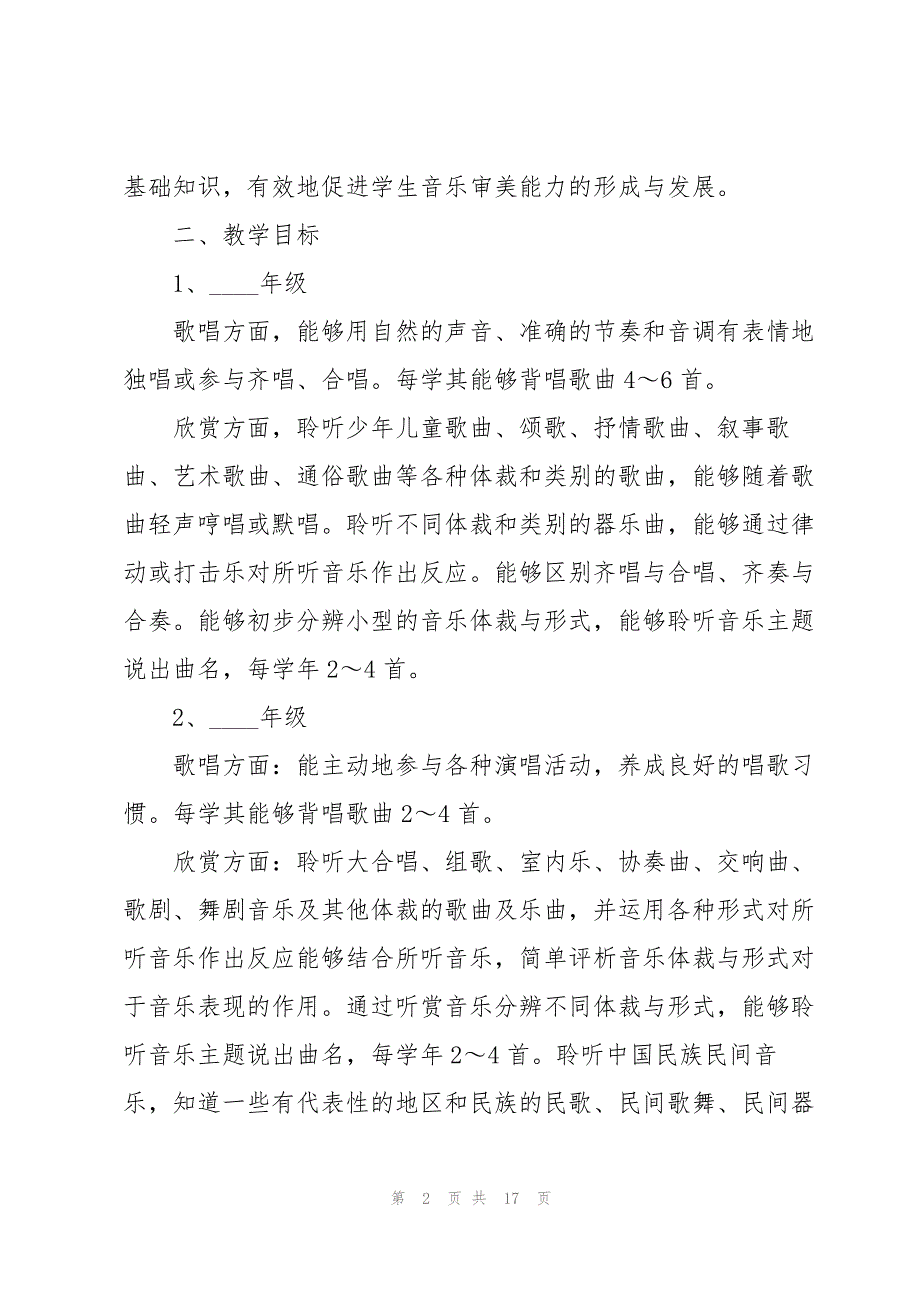 基础知识，有效地促进学生音乐审美能力的形成与发展。
二、教学目标
1、____年级
歌唱方面，能够用自然的声音、准确的节奏和音调有表情地
独唱或参与齐唱、合唱。每学其能够背唱歌曲 4～6 首。
欣赏方面，聆听少年儿童歌曲、颂歌、抒情歌曲、叙事歌
曲、艺术歌曲、通俗歌曲等各种体裁和类别的歌曲，能够随着歌
曲轻声哼唱或默唱。聆听不同体裁和类别的器乐曲，能够通过律
动或打击乐对所听音乐作出反应。能够区别齐唱与合唱、齐奏与
合奏。能够初步分辨小型的音乐体裁与形式，能够聆听音乐主题
说出曲名，每学年 2～4 首。
2、____年级
歌唱方面：能主动地参与各种演唱活动，养成良好的唱歌习
惯。每学其能够背唱歌曲 2～4 首。
欣赏方面：聆听大合唱、组歌、室内乐、协奏曲、交响曲、
歌剧、舞剧音乐及其他体裁的歌曲及乐曲，并运用各种形式对所
听音乐作出反应能够结合所听音乐，简单评析音乐体裁与形式对
于音乐表现的作用。通过听赏音乐分辨不同体裁与形式，能够聆
听音乐主题说出曲名，每学年 2～4 首。聆听中国民族民间音
乐，知道一些有代表性的地区和民族的民歌、民间歌舞、民间器
第 2 页 共 17 页